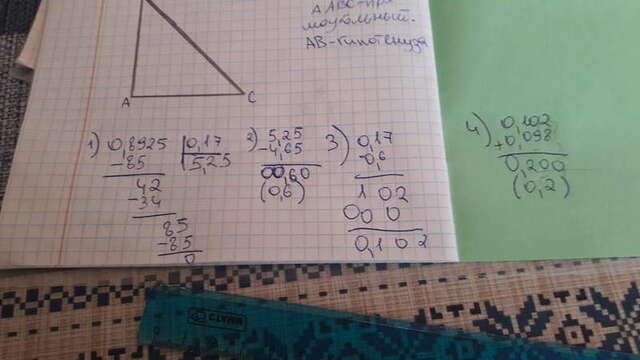 А АВС-пря
моугольный.
АВ-гипотенуза
А
С
1) 0,8925 0,17
-85 5,25
42
-34
85
-85
0
2) 5,25
-4,65
00,60
(0,6)
3) 0,17
0,6
102
000
0,102
4) 0,102
+0,098
0,200
(0,2)